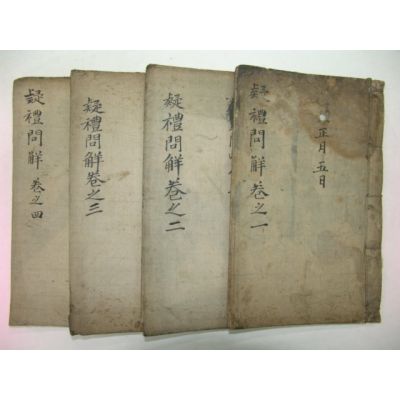 疑禮問解卷之一
正月五日
疑禮問解卷之二
疑禮問解卷之三
疑禮問解 卷之四